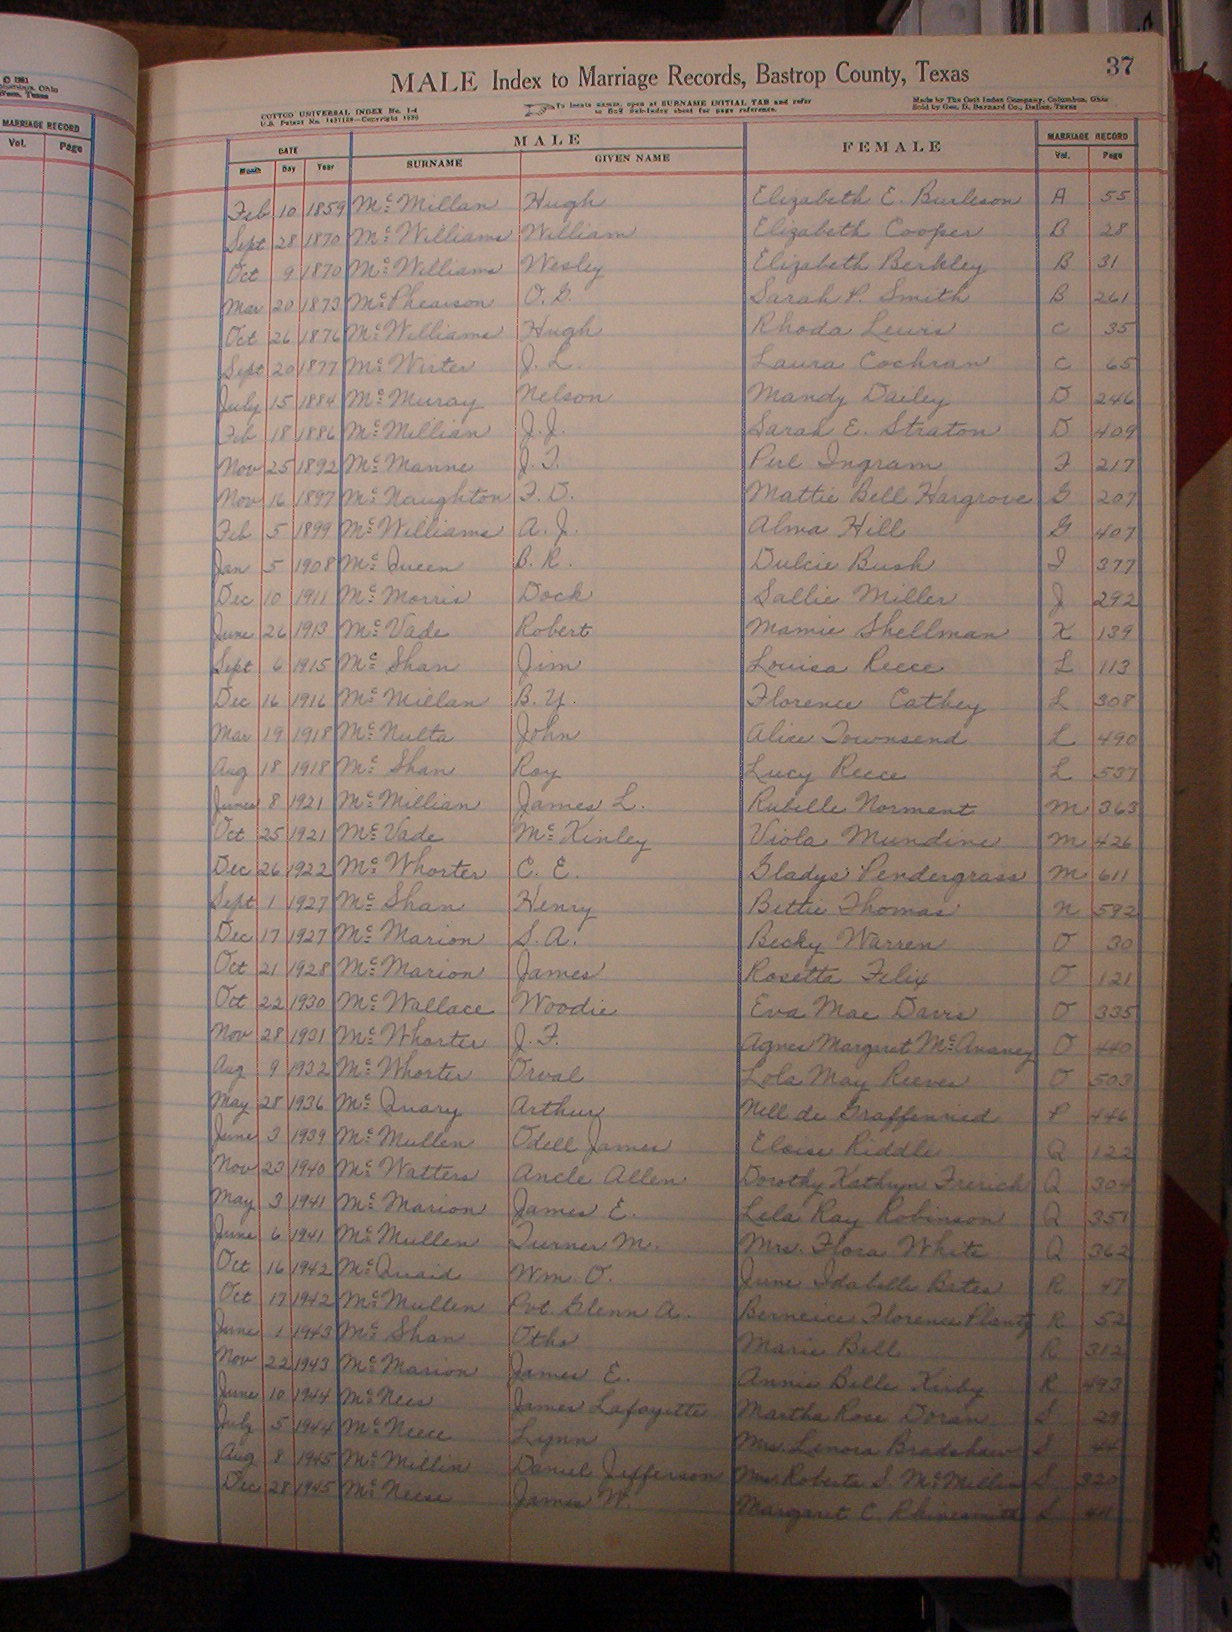 © 1931
Columbus, Ohio
Waco, Texas
MARRIAGE RECORD
Vol. Page
37
MALE Index to Marriage Records, Bastrop County, Texas
COTTCO UNIVERSAL INDEX No. 1-4
U.S. Patent No. 1457129—Copyright 1930
To locate names, open at SURNAME INITIAL TAB and refer
to Buff Sub-Index sheet for page reference.
Made by The Cott Index Company, Columbus, Ohio
Sold by Geo. D. Barnard Co., Dallas, Texas
DATE MALE FEMALE MARRIAGE RECORD
Month Day Year SURNAME GIVEN NAME Vol. Page
Feb 10 1859 Mc Millan Hugh Elizabeth E. Burleson A 55
Sept 28 1870 Mc Williams William Elizabeth Cooper B 28
Oct 9 1870 Mc Williams Wesley Elizabeth Berkley B 31
Mar 20 1873 Mc Phearson O. G. Sarah P. Smith B 261
Oct 26 1876 Mc Williams Hugh Rhoda Lewis C 35
Sept 20 1877 Mc Wirter J. L. Laura Cochran C 65
July 15 1884 Mc Muray Nelson Mandy Dailey D 246
Feb 18 1886 Mc Millian J. J. Sarah E. Straton D 409
Nov 25 1892 Mc Manne J. T. Perl Ingram F 217
Nov 16 1897 Mc Naughton F. D. Mattie Bell Hargrove G 207
Feb 5 1899 Mc Williams A. J. Alma Hill G 407
Jan 5 1908 Mc Queen B. R. Dulcie Bush I 377
Dec 10 1911 Mc Morris Dock Sallie Miller J 292
June 26 1913 Mc Vade Robert Mamie Shellman K 139
Sept 6 1915 Mc Shan Jim Louisa Reece L 113
Dec 16 1916 Mc Millan B. Y. Florence Cathey L 308
Mar 19 1918 Mc Nulta John Alice Townsend L 490
Aug 18 1918 Mc Shan Roy Lucy Reece L 537
June 8 1921 Mc Millian James L. Rubelle Norment M 363
Oct 25 1921 Mc Vade Mc Kinley Viola Mundine M 426
Dec 26 1922 Mc Whorter C. E. Gladys Pendergrass M 611
Sept 1 1927 Mc Shan Henry Bettie Thomas N 592
Dec 17 1927 Mc Marion S. A. Becky Warren O 30
Oct 21 1928 Mc Marion James Rosetta Felix O 121
Oct 22 1930 Mc Wallace Woodie Eva Mae Davis O 335
Nov 28 1931 Mc Whorter J. F. Agnes Margaret Mc Avaney O 440
Aug 9 1932 Mc Whorter Orval Lola May Reeves O 503
May 28 1936 Mc Quary Arthur Nell de Graffenried P 446
June 3 1939 Mc Mullen Odell James Eloise Riddle Q 122
Nov 23 1940 Mc Watters Ancle Allen Dorothy Kathryn Frerich Q 304
May 3 1941 Mc Marion James E. Lela Ray Robinson Q 351
June 6 1941 Mc Mullen Turner M. Mrs. Flora White Q 362
Oct 16 1942 Mc Quaid Wm. O. June Idabelle Bates R 47
Oct 17 1942 Mc Mullen Pvt. Glenn A. Berneice Florence Plantz R 52
June 1 1943 Mc Shan Otho Marie Bell R 312
Nov 22 1943 Mc Marion James E. Annie Belle Kirby R 493
June 10 1944 Mc Nees James Lafayette Martha Rose Doran S 29
July 5 1944 Mc Neece Lynn Mrs. Lenora Bradshaw S 44
Aug 8 1945 Mc Millin Daniel Jefferson Mrs. Roberta S. Mc Millin S 320
Dec 28 1945 Mc Neese James W. Margaret C. Rhinesmith S